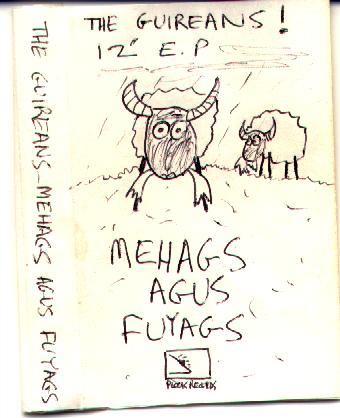 THE GUIREANS!
12" E.P
MEHAGS
AGUS
FUYAGS
RECORDS
THE GUIREANS_MEHAGS AGUS FUYAGS